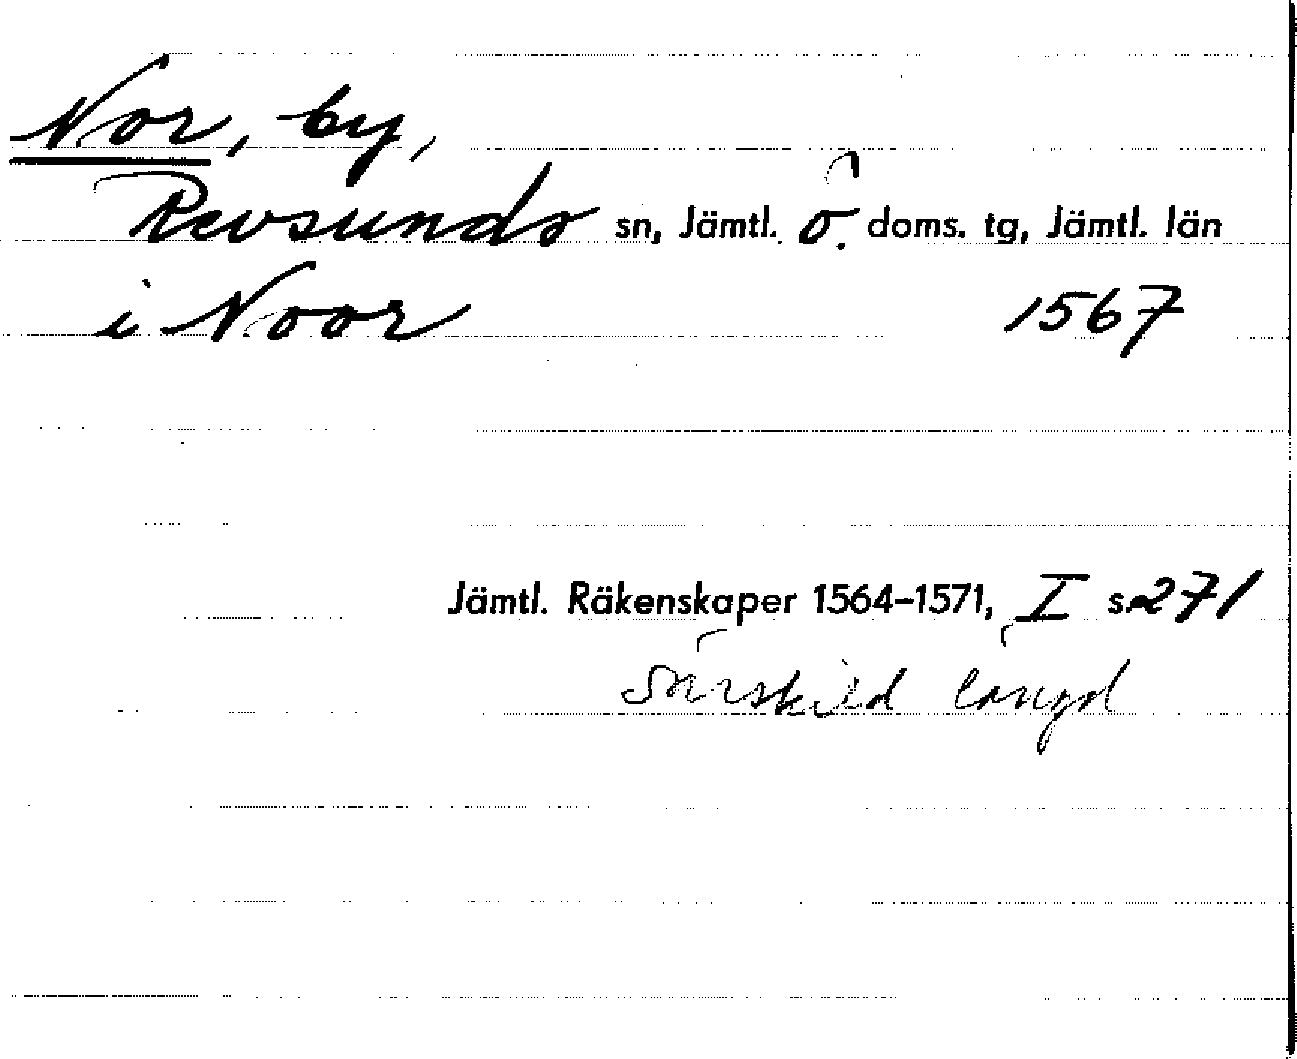 Nor, by,
Revsunds sn, Jämtl. ö. doms. tg, Jämtl. län
i Noor 1567
Jämtl. Räkenskaper 1564-1571, I s. 271
Särskild längd